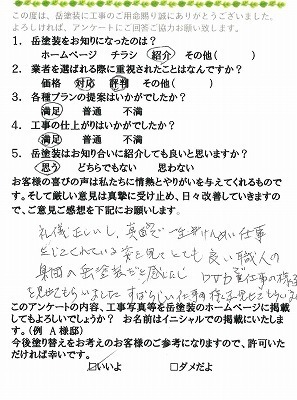 この度は、岳塗装に工事のご用命賜り誠にありがとうございました。
よろしければ、アンケートにご回答ご協力お願い致します。
1. 岳塗装をお知りになったのは？
ホームページ　チラシ　紹介　その他（　　）
2. 業者を選ばれる際に重視されたことはなんですか？
価格　対応　評判　その他（　　）
3. 各種プランの提案はいかがでしたか？
満足　普通　不満
4. 工事の仕上がりはいかがでしたか？
満足　普通　不満
5. 岳塗装はお知り合いに紹介しても良いと思いますか？
思う　どちらでもない　思わない
お客様の喜びの声は私たちに情熱とやりがいを与えてくれるものです。
そして厳しい意見は真摯に受け止め、日々改善していきますので、
ご意見ご感想を下記にお願いします。
礼儀正しいし、真面目で一生けんめい仕事
をしてくれている姿を見てとても良い職人の
集団の岳塗装だと感じた　仕事の様子
を見せてもらいました すばらしい仕事の様子を見せてもらいま
このアンケートの内容、工事写真等を岳塗装のホームページに掲載
してもよろしいでしょうか？　お名前はイニシャルでの掲載にいたします。
（例　A 様邸）
今後塗り替えをお考えのお客様のご参考になりますので、許可いただければ幸いです。
☑いいよ　□ダメだよ